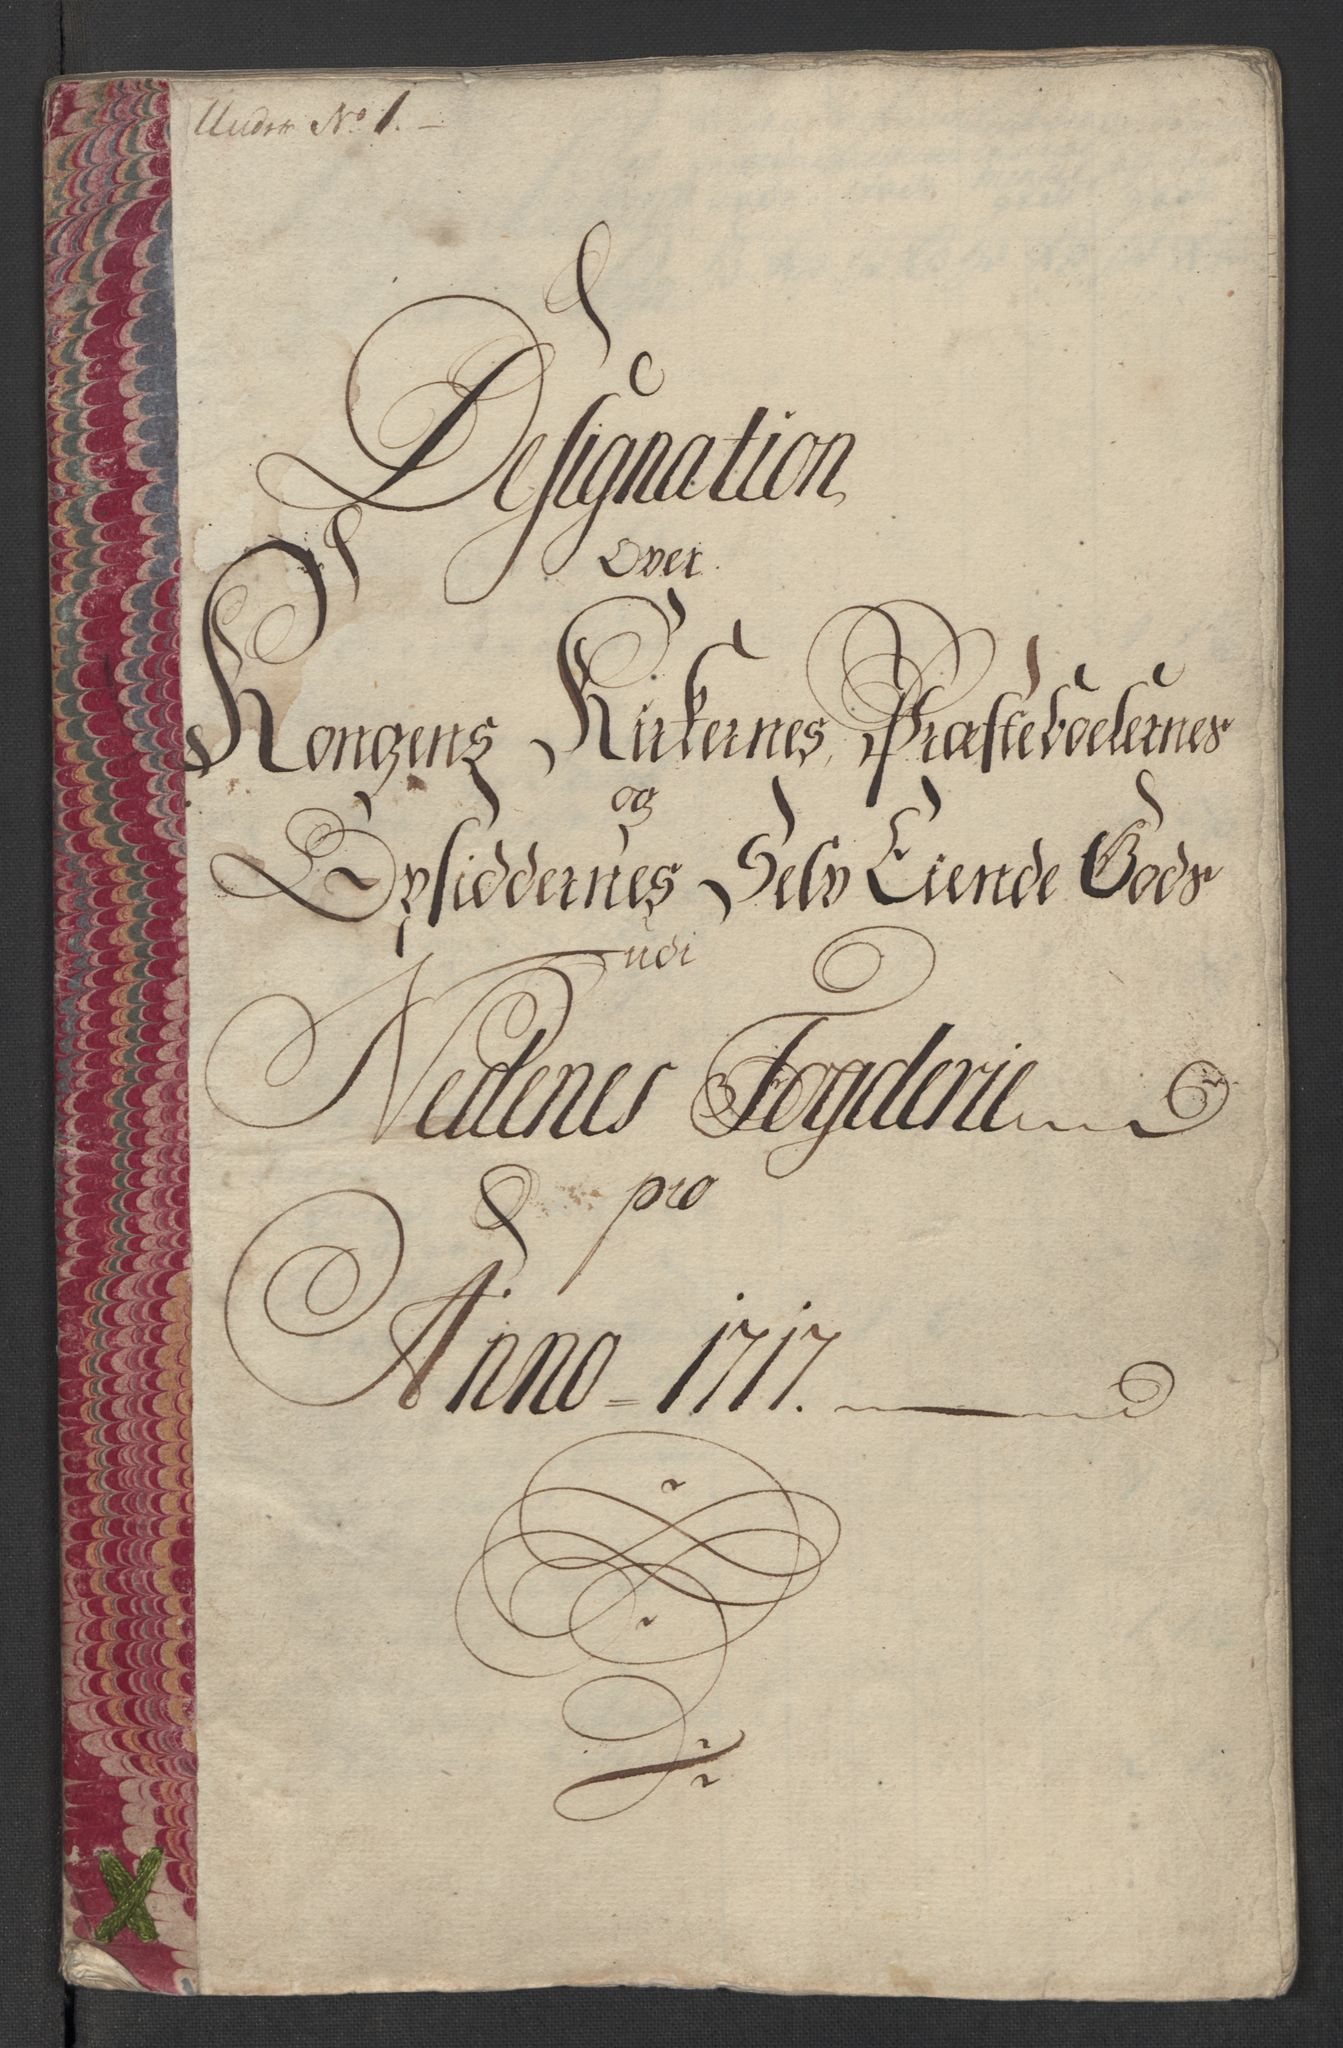 Under No 1.
Designation
Over
Kongens, Kirkernes, Præsteboelernes
og
Opsiddernes Selv Eiende Gods
udi
Nedenes Fogderie
pro
Anno = 1717.